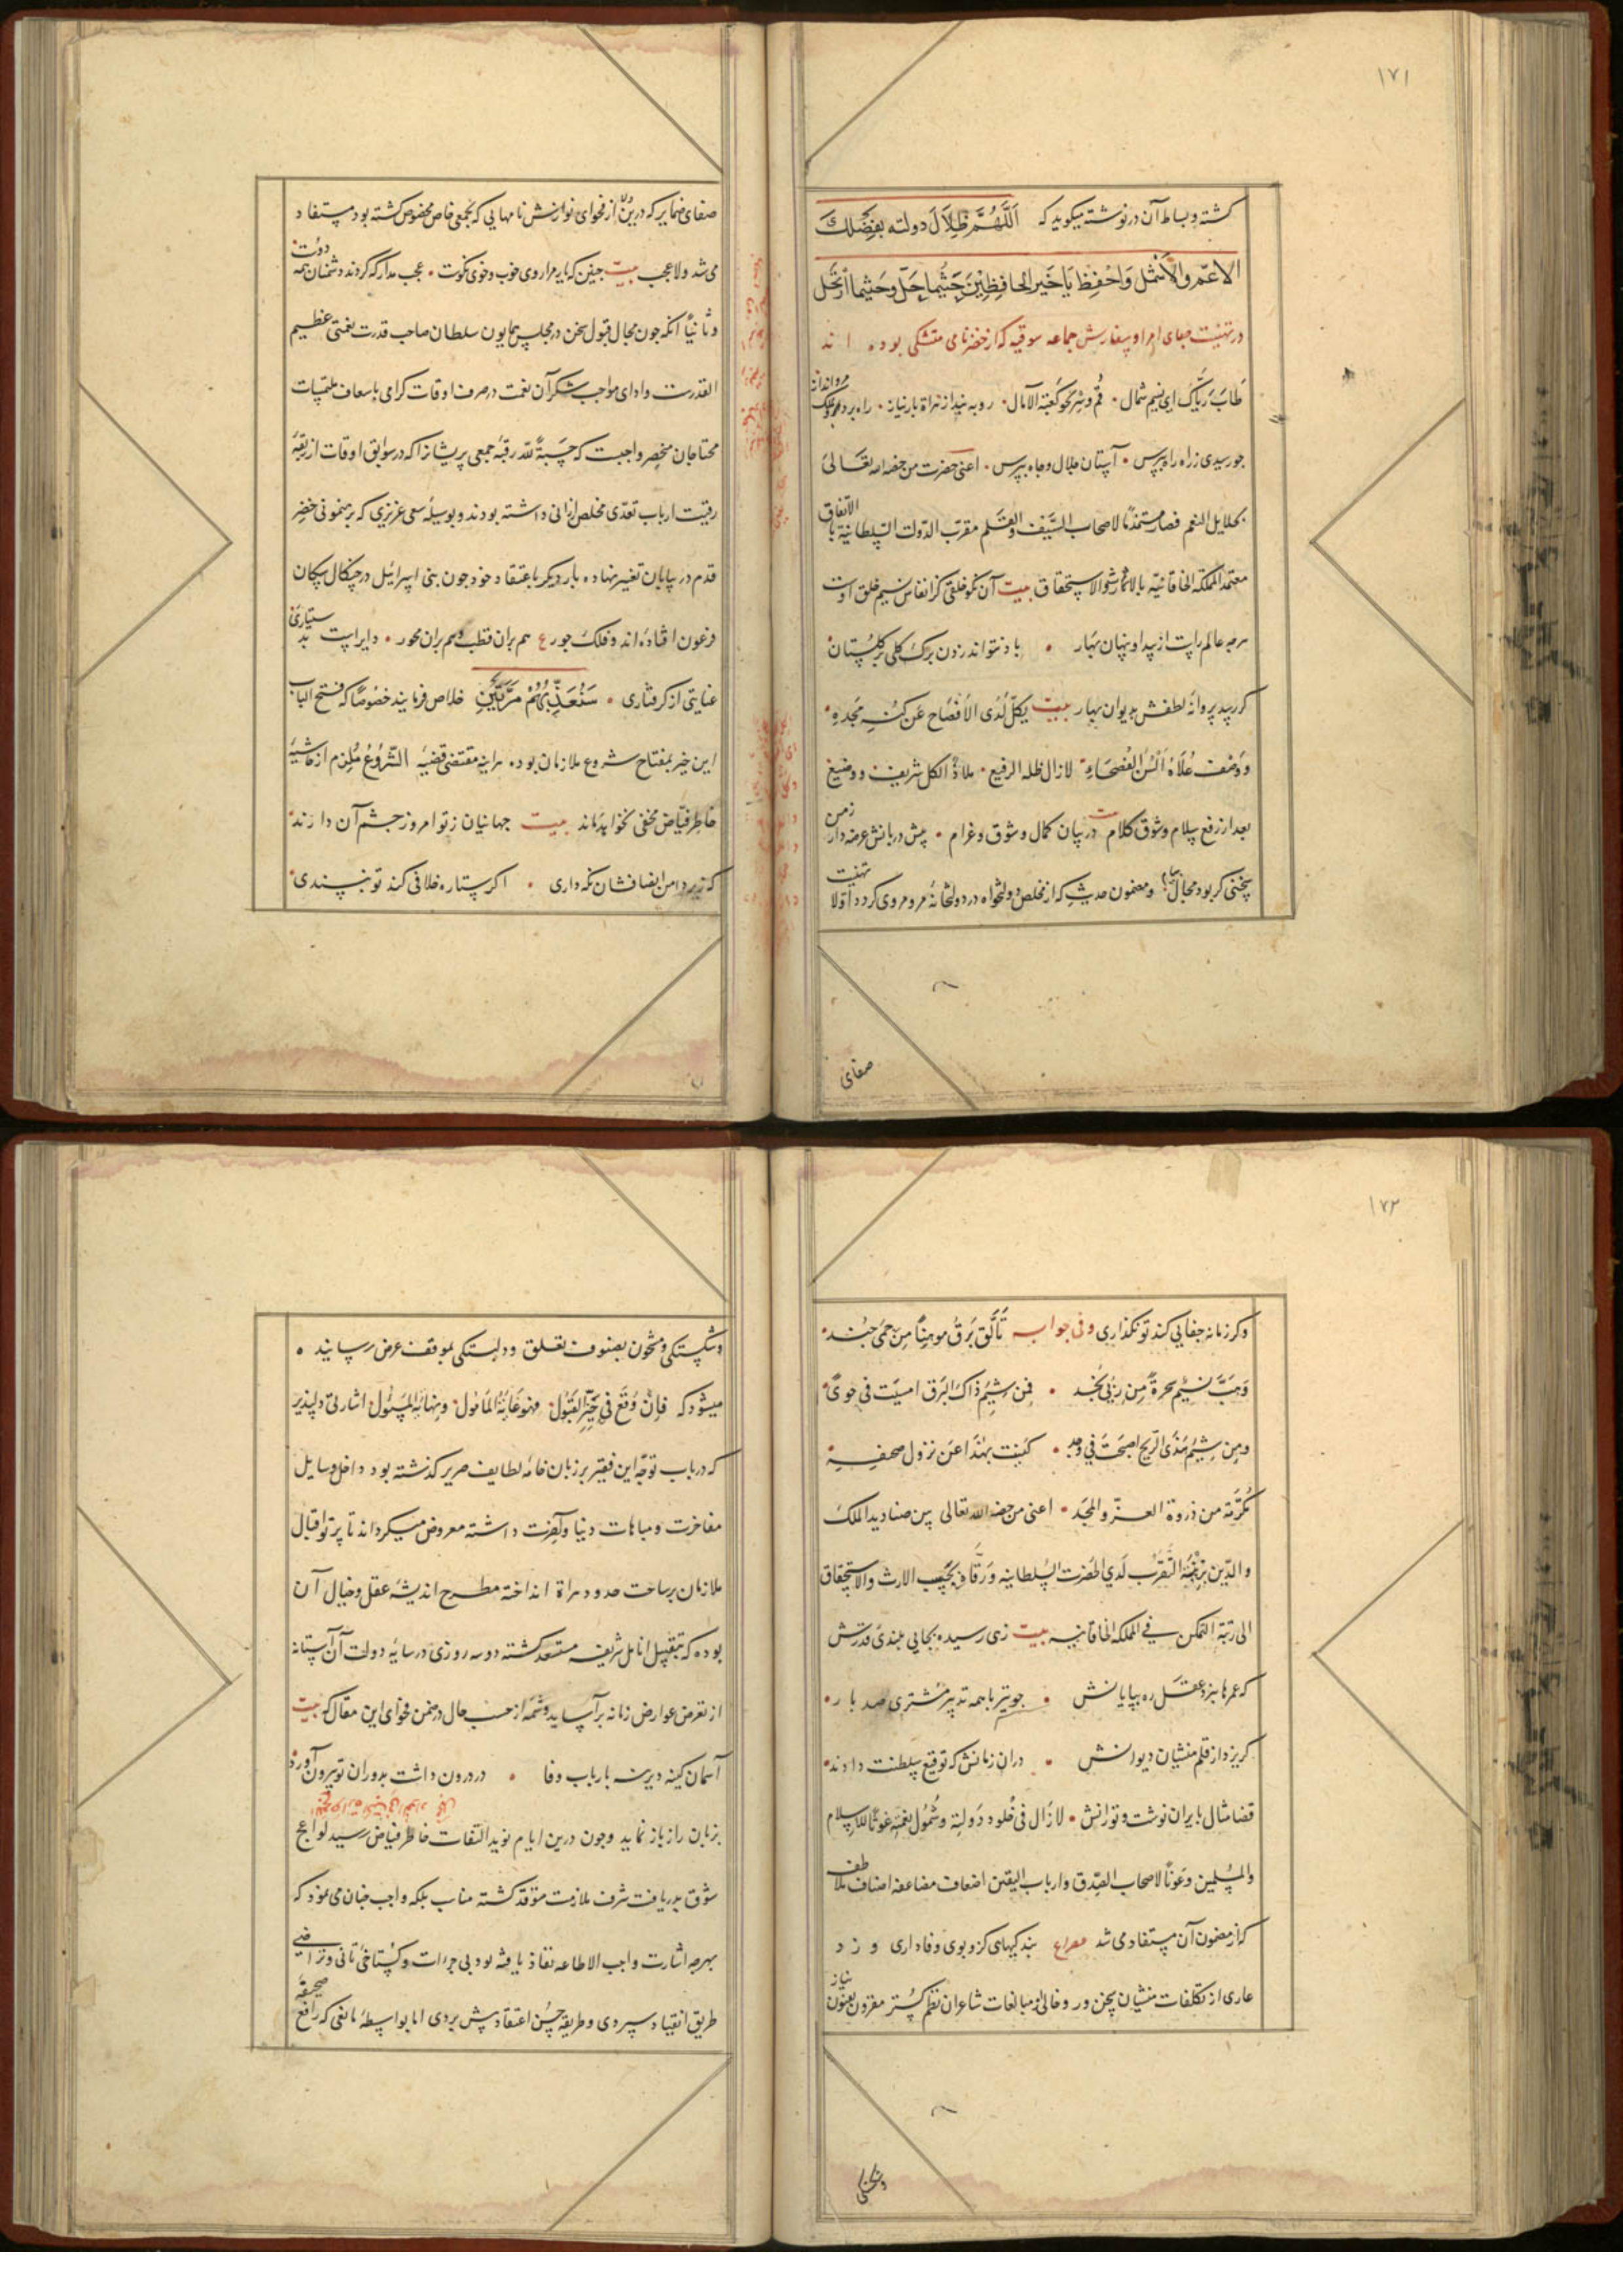 ١٧١
کشته و بساط آن در نوشته میکوید که اَللَّهُمَّ ظِلَالَ دولته بِفَضْلِكَ
الاعمّ والاشمل وَاحْفِظ یَا خَیرالحافِظِیْنَ حَیْثُما حَلَّ وحَیثما ارتحل
در تهنیت صبای امرا و سفارش جماعه سوقیه که از خضر نامی متشکی بوده اند
طابَ رَیّاک ای نسیم شمال قُم وسِر نحو کعبة الآمال رو به نه از هراة بار نیاز راه بر در
جو رسیدی ز راه راه بپرس آستان جلال و جاه بپرس اعنی حضرت من خصه الله تعالی
بجلایل النعم فصار لاصحاب السَّیف والقلم مقرّب الدّولت السلطانیّة بالاتفاق
معتمد المملکة الخاقانیّه بالارث والاستحقاق بیت آن نکو خلقی کز انفاس نسیم خلق اوست
هرچه عالم راست از پیدا و پنهان بهار باد نتواند زدن برک کلی بر کلستان
کر رسد پروانهٔ لطفش بدیوان بهار بیت یکلّ لَدَی الافصاح عَن کُنه مَجده
و وصف عُلاه اَلسُن الفُصَحاء لازال ظله الرفیع ملاذ الکل شریف و وضیع
بعد از رفع سلام و شوق کلام در بیان کمال و شوق و غرام پیش دربانش عرضه دار زمن
سخنی کر بود مجال و مضمون حدیث که از مخلص دولتخواه در دولتخانه مرو مروی کردد اولا تهنیت
صفای
صفای ضمایر که درین از فحوای نوازش نامهایی که بجمعی خاص مخصوص کشته بود مستفاد
می شد ولا عجب بیت جنین که یار مرا روی خوب و خوی نکوت عجب مدار که کردند دشمنان همه دوست
و ثانیاً آنکه جون مجال قبول سخن در مجلس همایون سلطان صاحب قدرت نعمتی عظیم
القدرست و ادای مواجب شکر آن نعمت در صرف اوقات کرامی باسعاف ملتمسات
محتاجان منحصر واجبست که حسبةً لله رقبهٔ جمعی پریشانرا که در سوابق اوقات از ربقهٔ
رقیت ارباب تعدّی مخلص ارزانی داشته بودند و بوسیلهٔ سعی عزیزی که برهنمونی خضر
قدم در بیابان تغییر نهاده بار دیکر باعتقاد خود جون بنی اسرائیل در جنکال سکان
فرعون افتاده اند و فلک جور ع هم بران قطب و هم بران محور دایر است بدستیاری
عنایتی از کرفتاری سَنُعَذِّبُهُمْ مَرَّتَیْنِ خلاص فرمایند خصوصاً که فتح الباب
این خیر بمفتاح شروع ملازمان بوده هراینه مقتضی قضیهٔ الشروعُ مُلزِم از حاشیهٔ
خاطر فیاض مخفی نخواهد ماند بیت جهانیان ز تو امروز جشم آن دارند
که زیر دامن انصافشان نکه داری اکر ستاره خلافی کند تو نپسندی
١٧٢
وکر زمانه جفایی کند تو نکذاری وفی جوابه تَأَلَّق بَرقُ موهِناً مِن حمَی جُند
وَهَبَّ نسیْم سحرةً مِن رُبی نجد فمن شیم ذاک البَرق امسیت فی جویً
ومن شمیم هذی الرّیح اصبحت فی وجد کَنیت بهٰذا عن نزول صحیفة
مُکرَّمة من ذروة العزّ والمجد اعنی من خصه الله تعالی بین صنادید الملک
والدّین بمزیّة التّقرب لَدَی الحضرت السُلطانیه ورَقاه بحَسَب الارث والاستحقاق
الی رتبة التمکن فی المملکة الخاقانیه بیت زهی رسیده بجایی بلندی قدرش
که عمرها نبرد عقل ره بپایانش جو تیر با همه تدبیر مشتری صد بار
کریزد از قلم منشیان دیوانش دران زمانش که توقیع سلطنت دادند
قضا مثال بایران نوشت و تورانش لازال فی خلود دَولته وشُمُول نعمته غوثاً للاسلام
والمسلمین وعَوناً لاصحاب الصِّدق وارباب الیقین اضعاف مضاعفه اصناف ملاطفه
که از مضمون آن مستفاد می شد مصراع بندکیهای کزو بوی وفاداری وزد
عاری از تکلفات منشیان سخن ور و خالی از مبالغات شاعران نظم کستر مقرون بعنون نیاز
وشکستکی
وشکستکی و مشحون بصنوف تعلق و دلبستکی بموقف عرض رسانیده
میشود که فاِنْ وَقَعَ فی حَیّز القبُول فهو غایة المأمول ونهایة المسئول اشارتی دلپذیر
که در باب توجّه این فقیر بر زبان خامهٔ لطایف صریر کذشته بود داخل وسایل
مفاخرت و مباهات دنیا و آخرت داشته معروض میکرداند تا پرتو اقبال
ملازمان بر ساحت حدود هراة انداخته مطرح اندیشهٔ عقل و خیال آن
بوده که بتقبیل انامل شریفه مستسعد کشته دو سه روزی در سایهٔ دولت آن آستانه
از تعرض عوارض زمانه برآساید و شمهٔ از حسب حال در ضمن فحوای این مقال که بیت
آسمان کینه دیرینه بارباب وفا در درون داشت بدوران تو بیرون آورد
بزبان راز باز نماید و جون درین ایام نوید التفات خاطر فیاض رسید لواعج
شوق بدریافت شرف ملازمت متوقد کشته مناسب بلکه واجب جنان می نمود که
بهرچه اشارت واجب الاطاعه نفاذ یافته بود بی جرأت و کستاخی تانی و تراخی
طریق انقیاد سپردی و طریقهٔ حسن اعتقاد پیش بردی اما بواسطهٔ مانعی که رافع صحیفه